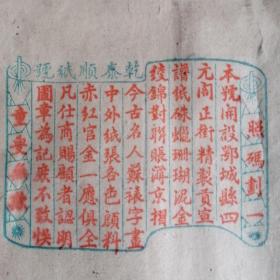 照碼劃一
乾泰順紙號
本號開設鄂城縣四
元閣正街精製貢宣
紙硃蠟珊瑚泥金
綾錦對聯賬簿京摺
今古名人蘇裱字畫
中外紙張各色顏料
赤紅官金一應俱全
凡仕商賜顧者認明
圖章為記庶不致悞
童叟無欺